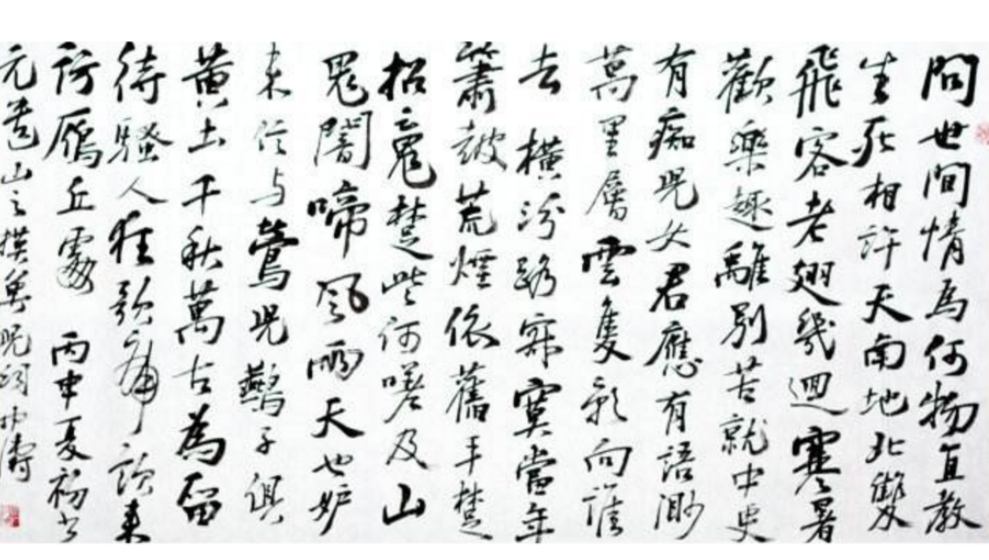 問世間情爲何物直教
生死相許天南地北雙
飛客老翅幾迴寒暑
歡樂趣離別苦就中更
有痴兒女君應有語渺
萬里層雲隻影向誰
去 橫汾路寂寞當年
簫鼓荒煙依舊平楚
招魂楚些何嗟及山
鬼闇啼風雨天也妒
未信与鶯兒鷰子俱
黄土千秋萬古為留
待騷人狂歌痛飲來
訪鴈丘處 丙申夏初書
元遺山之摸魚兒詞 濤